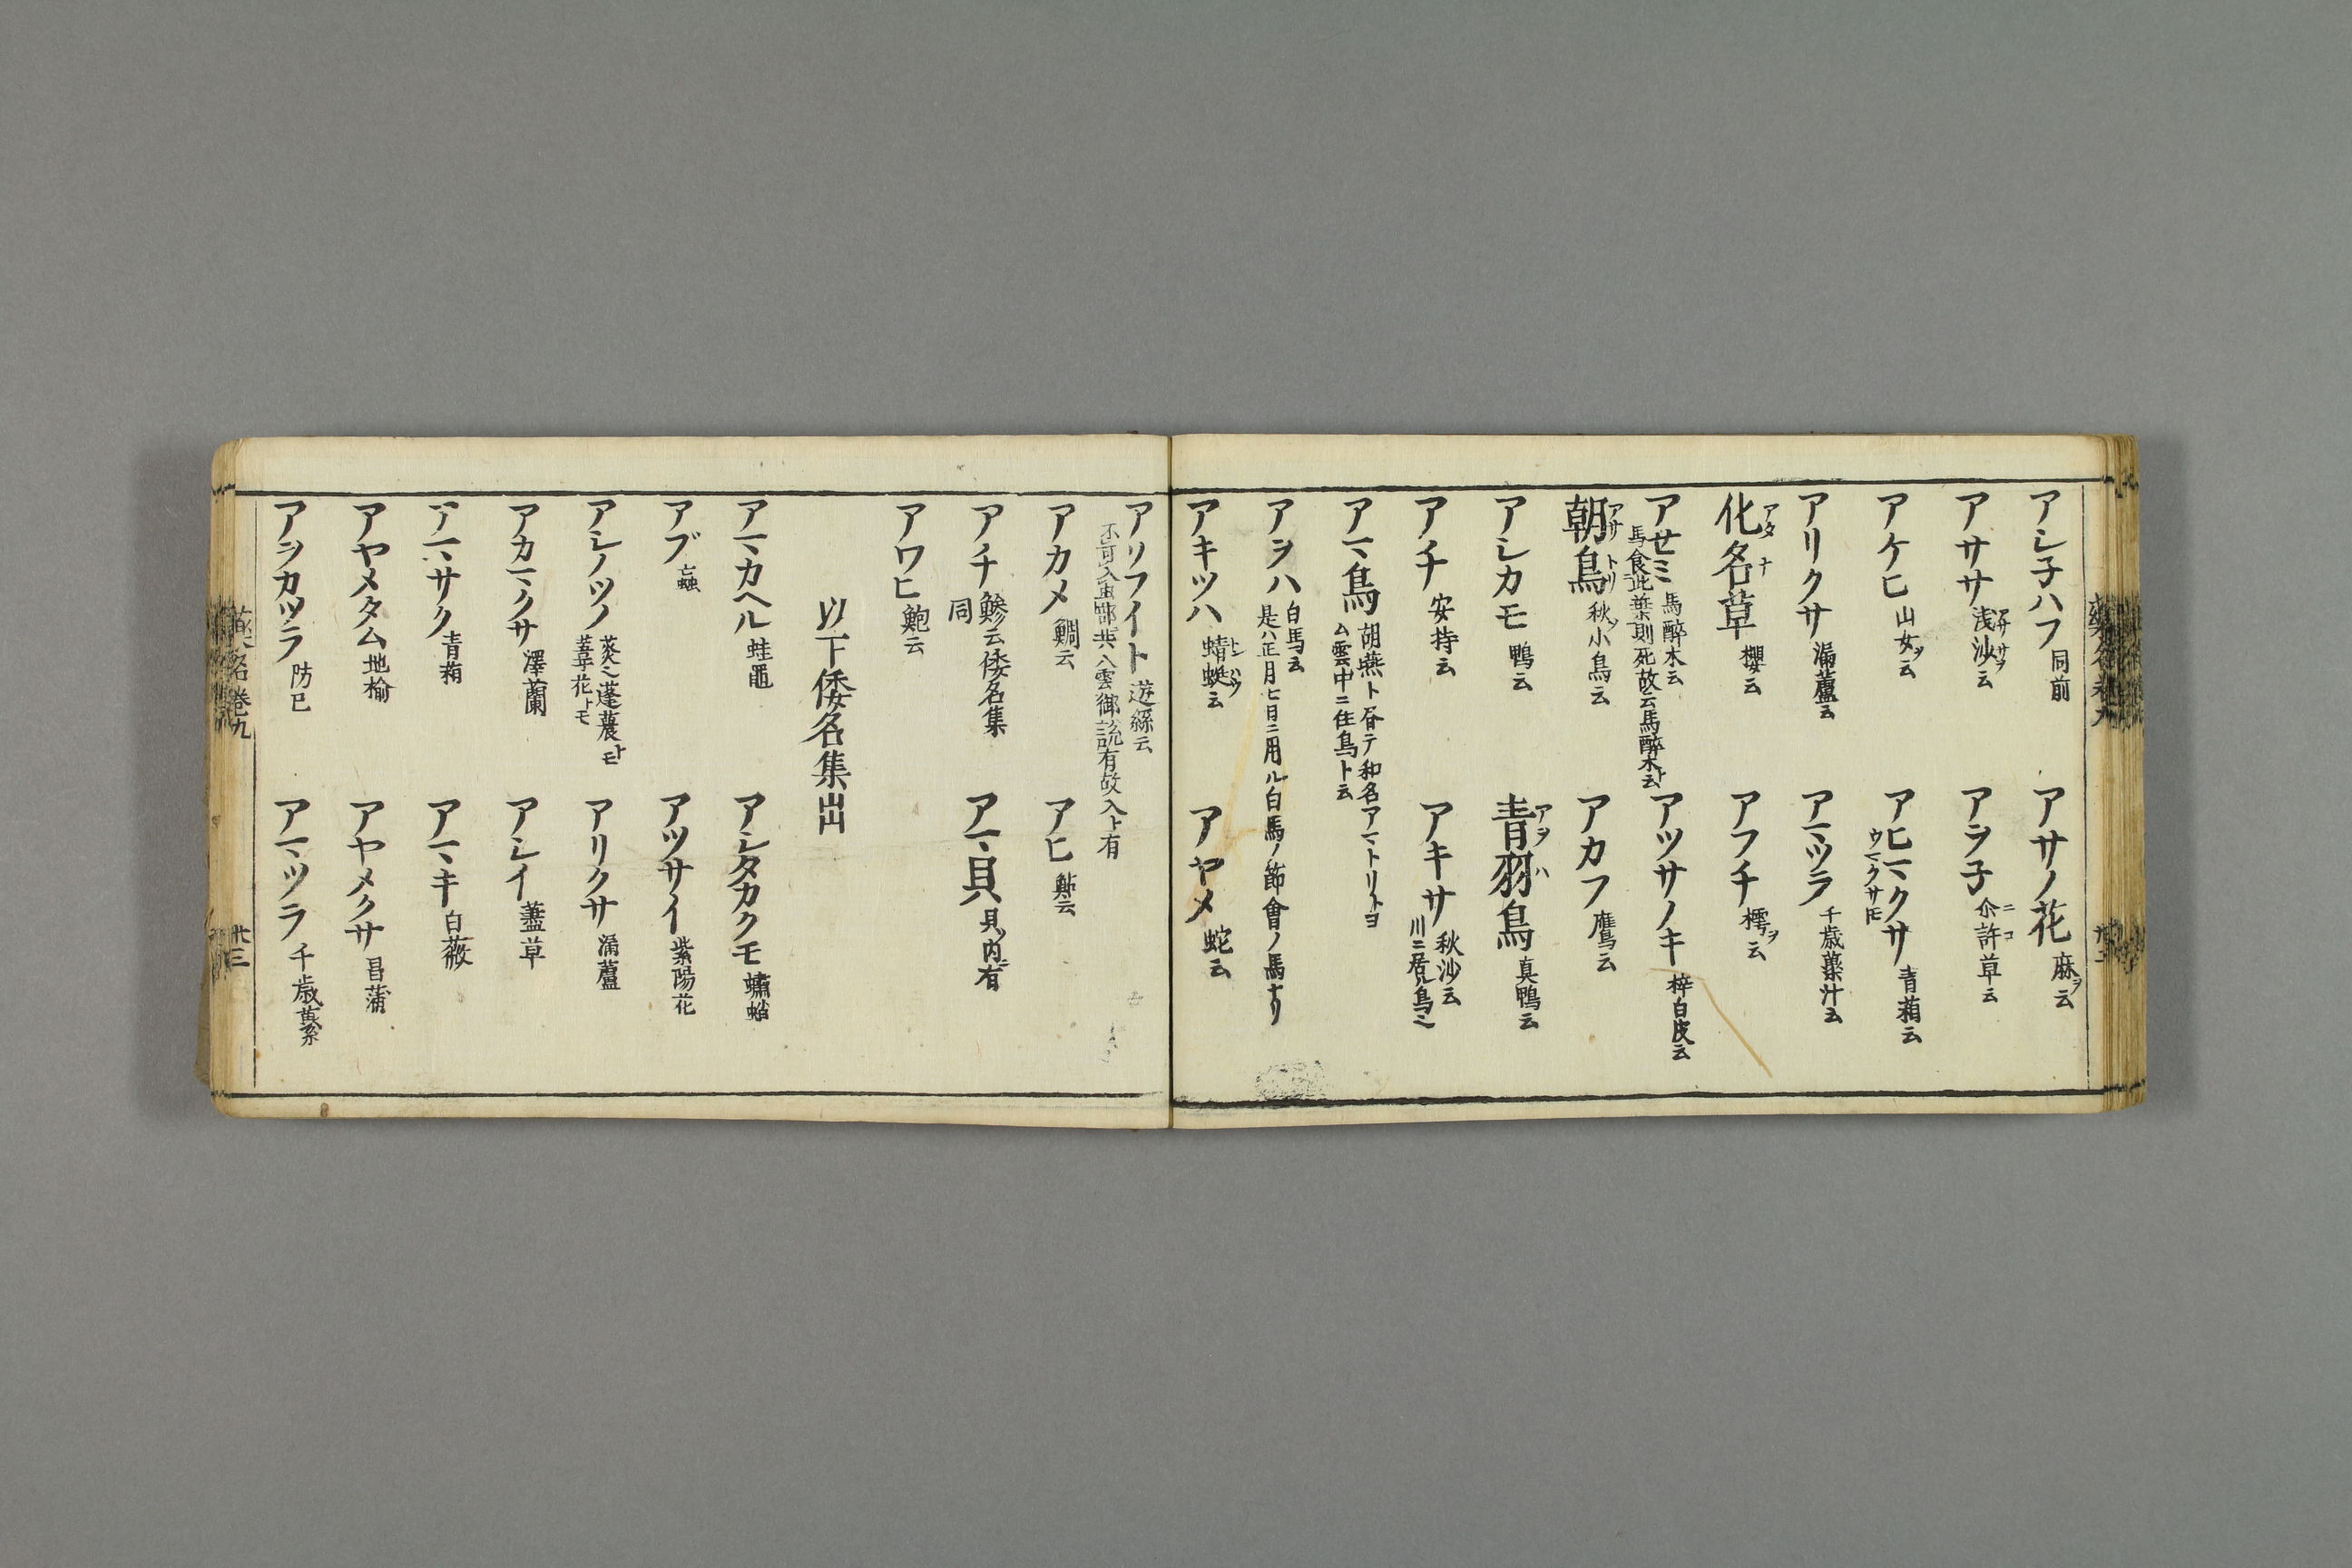 アシ子ハフ 同前 アサノ花 麻ヲ云
アササ 浅沙ヲ云 アヲ子 尒許草云
アケヒ 山女ヲ云 アヒマクサ 青葙云
アリクサ 漏蘆云 アマツラ 千歳虆汁云
化名草 アタナ 櫻云 アフチ 樗ヲ云
アせミ 馬醉木云 アツサノキ 梓白皮云
馬食此葉則死故云馬醉木ト云
朝鳥 アサトリ 秋ノ小鳥云 アカフ 鷹云
アシカモ 鴨云 青羽鳥 アヲハ 真鴨云
アチ 安持云 アキサ 秋沙云
川ニ居ル鳥ミ
アマ鳥 胡燕ト昏テ和名アマトリトヨ
ム雲中ニ住鳥ト云
アヲハ 白馬云
是ハ正月七日ニ用ル白馬ノ節會ノ馬ナリ
アキツハ 蜻蜓云 アヤメ 蛇云
アリフイト 遊絲云
八雲御説有故入ト有
アカメ 鯛云 アヒ 鮎云
アチ 鯵云倭名集 アマ貝 貝ノ内ニ有
同
アワヒ 鮑云
以下倭名集出
アマカヘル 蛙黽 アシタカクモ 蠨蛸
アブ 䖟 アツサイ 紫陽花
アシノツノ 葼之蓬䕠トモ アリクサ 漏蘆
䓇花トモ
アカマクサ 澤蘭 アシイ 藎草
アマサク 青葙 アマキ 白薇
アヤメタム 地楡 アヤメクサ 昌蒲
アヲカツラ 防已 アマツラ 千歳虆
名卷九
廿三